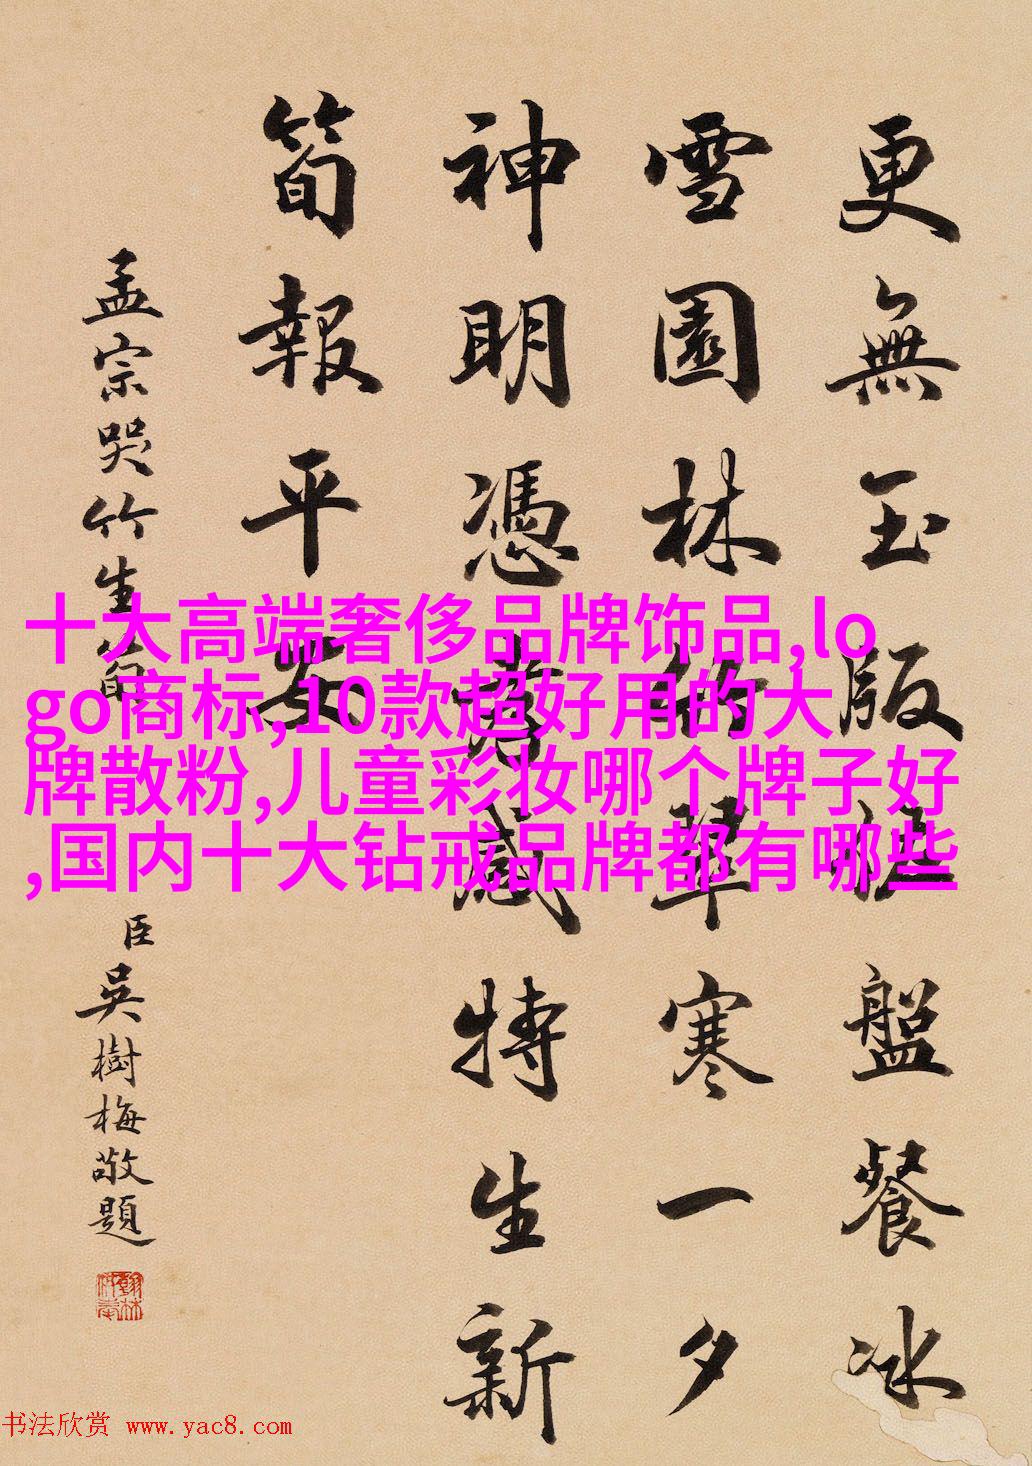 更無玉版盤餐冰
雪園林翠寒一夕
神明憑感特生新
筍報平安
孟宗哭竹生筍
臣吳樹梅敬題
十大高端奢侈品牌饰品,lo
go商标,10款超好用的大
牌散粉,儿童彩妆哪个牌子好
,国内十大钻戒品牌都有哪些
书法欣赏 www.yac8.com